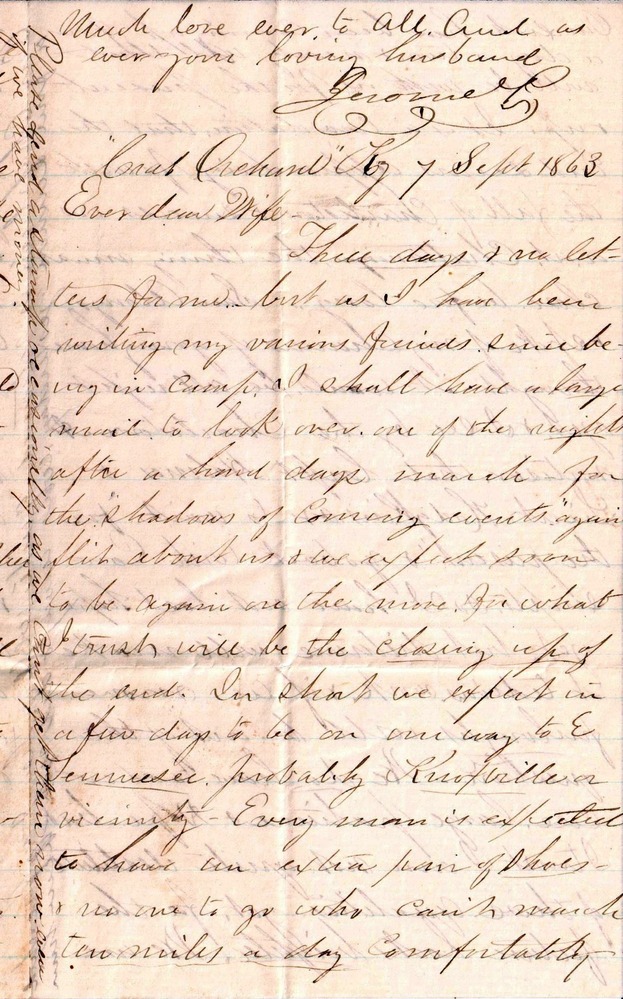 Much love ever to all. And as
ever your loving husband
Jerome
"Crab Orchard" Ky 7 Sept 1863
Ever dear Wife -
Three days & no let-
ters for me - but as I have been
writing my various friends since be-
ing in camp, I shall have a large
mail to look over one of the nights
after a hard days march for
the "shadows of coming events" again
flit about us & we expect soon
to be again on the move. for what
I trust will be the closing up of
the end. In short we expect in
a few days to be on our way to E
Tennessee. probably Knoxville or
vicinity - Every man is expected
to have an extra pair of shoes -
& no one to go who can't march
ten miles a day comfortably
Please send a stamp occasionally as we can't get them now